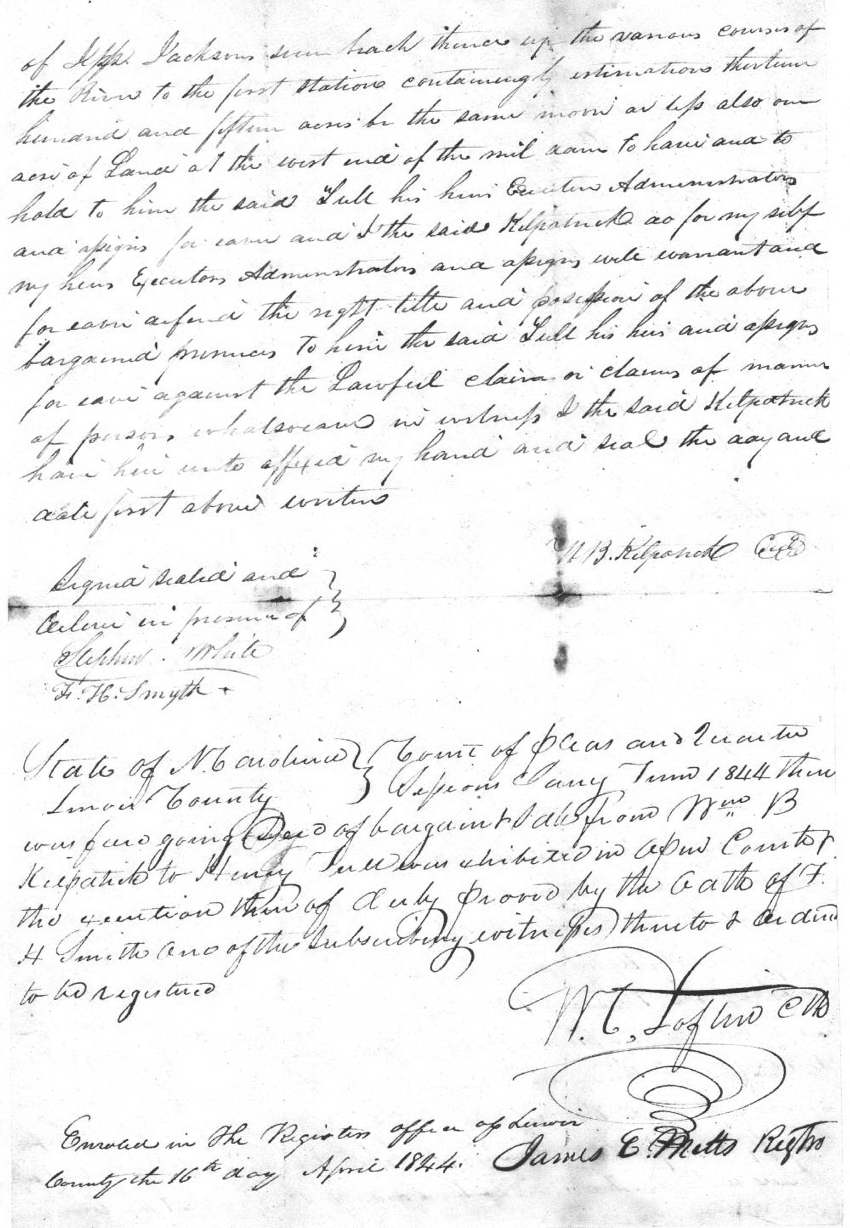 of Jesse Jacksons seem back thence up the various courses of
the River to the first station containing by estimations thirteen
hundrid and fiften acres be the same moore or less also one
acre of Land at the west end of the mil dam to have and to
hold to him the said Tull his heirs Executors Administrators
and assigns for ever and I the said Kilpatrick do for my self
my heirs Executors Administrators and assigns will warrant and
for ever defend the right title and possession of the above
bargained premises to him the said Tull his heirs and assigns
for ever against the Lawful claim or claims of manner
of persons whatsoever in witness I the said Kilpatrick
have here unto affixed my hand and seal the day and
date first above writen
W B. Kilpatrick
Signed sealed and
delivered in presence of
Stephen White
F. H. Smyth
State of N. Carolina } Court of Pleas and Quarter
Lenoir County } Sessions Term 1844 then
was fore going Deed of bargain & Sale from Wm B
Kilpatrick to Henry Tull was exhibited in open Court &
the execution there of duly proved by the oath of F.
H Smith one of the subscribing witnesses thereto & ordered
to be registered
W. C. Loftin Clk
Enroled in the Registers office of Lenoir
County the 16th day April 1844. James E. Metts Regtr